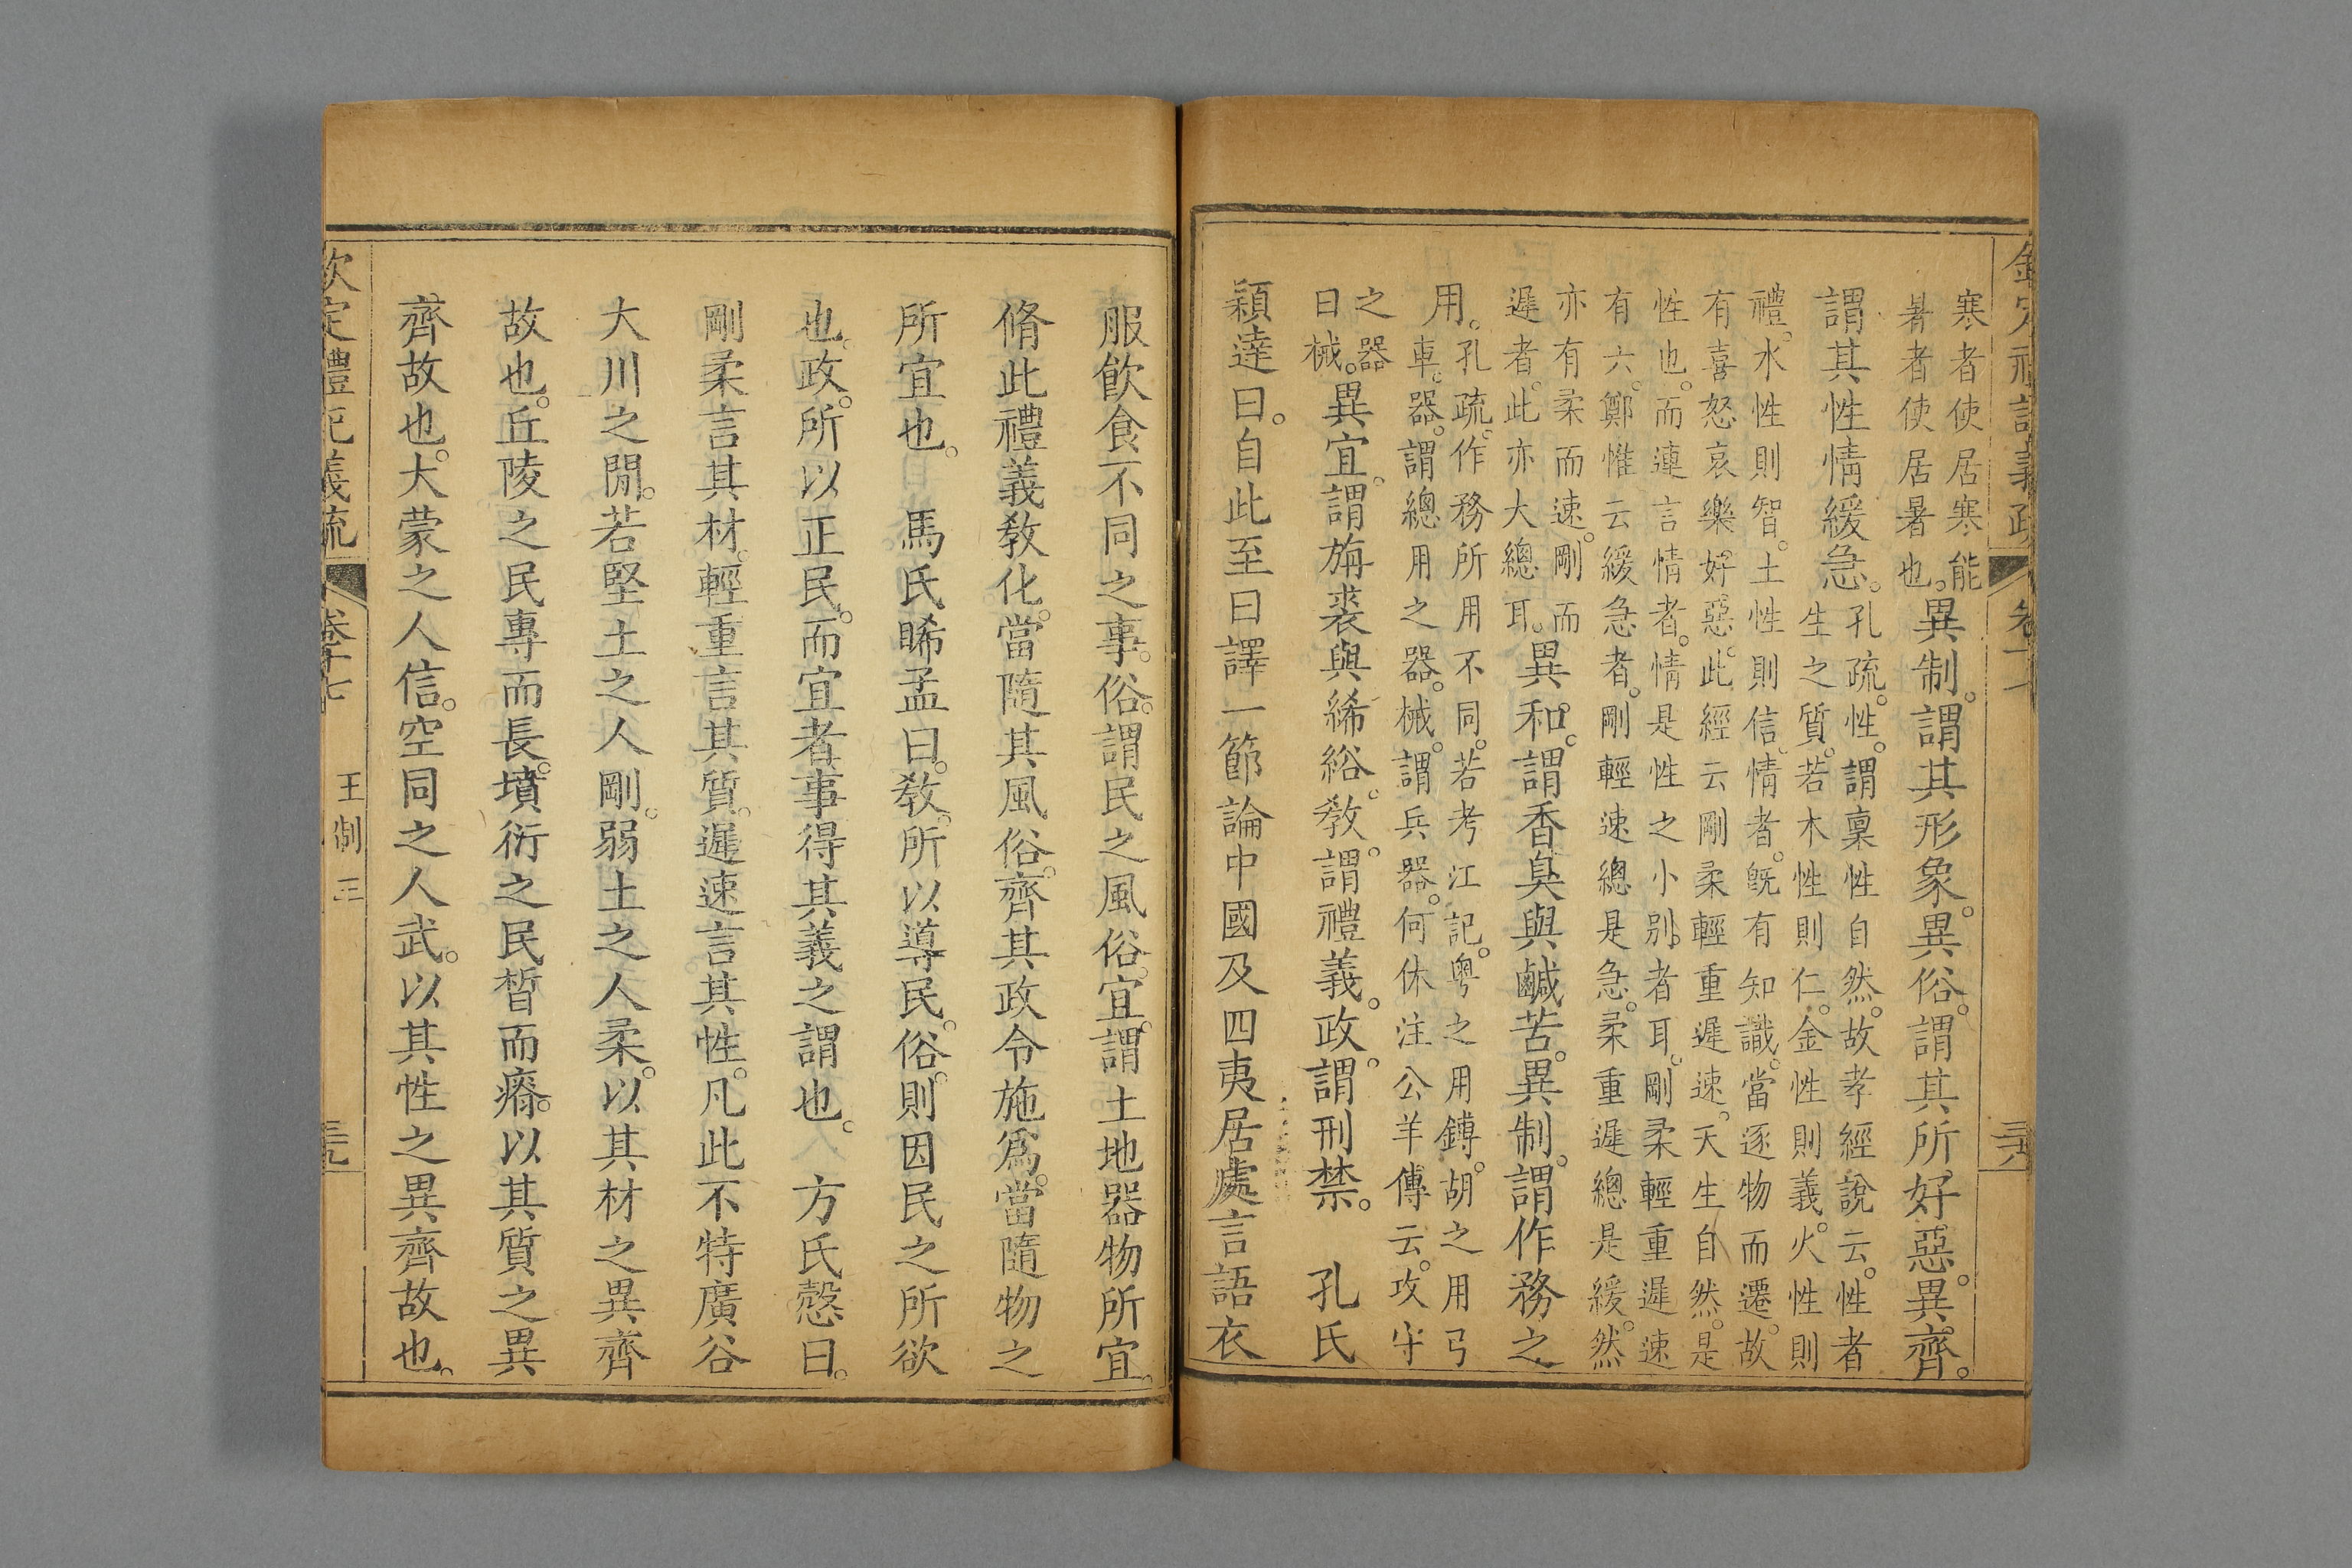 欽定禮記義疏 卷十七 三六
寒者使居寒能
暑者使居暑也。
異制。謂其形象。異俗。謂其所好惡。異齊。
謂其性情緩急。
孔疏。性。謂稟性自然。故孝經說云。性者
生之質。若木性則仁。金性則義。火性則
禮。水性則智。土性則信。情者。旣有知識。當逐物而遷。故
有喜怒哀樂好惡。此經云剛柔輕重遲速。天生自然。是
性也。而連言情者。情是性之小別者耳。剛柔輕重遲速
有六。鄭惟云緩急者。剛輕速總是急。柔重遲總是緩。然
亦有柔而速。剛而
遲者。此亦大總耳。
異和。謂香臭與鹹苦。異制。謂作務之
用。
孔疏。作務所用不同。若考江記。粤之用鎛。胡之用弓
車。器。謂總用之器。械。謂兵器。何休注公羊傳云。攻守
之器
曰械。
異宜。謂旃裘與絺綌。敎。謂禮義。政。謂刑禁。　孔氏
穎達曰。自此至曰譯一節論中國及四夷居處言語衣
服飮食不同之事。俗。謂民之風俗。宜。謂土地器物所宜。
脩此禮義敎化。當隨其風俗。齊其政令施爲。當隨物之
所宜也。　馬氏睎孟曰。敎。所以導民。俗。則因民之所欲
也。政。所以正民。而宜者事得其義之謂也。　方氏慤曰。
剛柔言其材。輕重言其質。遲速言其性。凡此不特廣谷
大川之閒。若堅土之人剛。弱土之人柔。以其材之異齊
故也。丘陵之民專而長。墳衍之民晳而瘠。以其質之異
齊故也。大蒙之人信。空同之人武。以其性之異齊故也。
欽定禮記義疏 卷十七 王制 三 三九